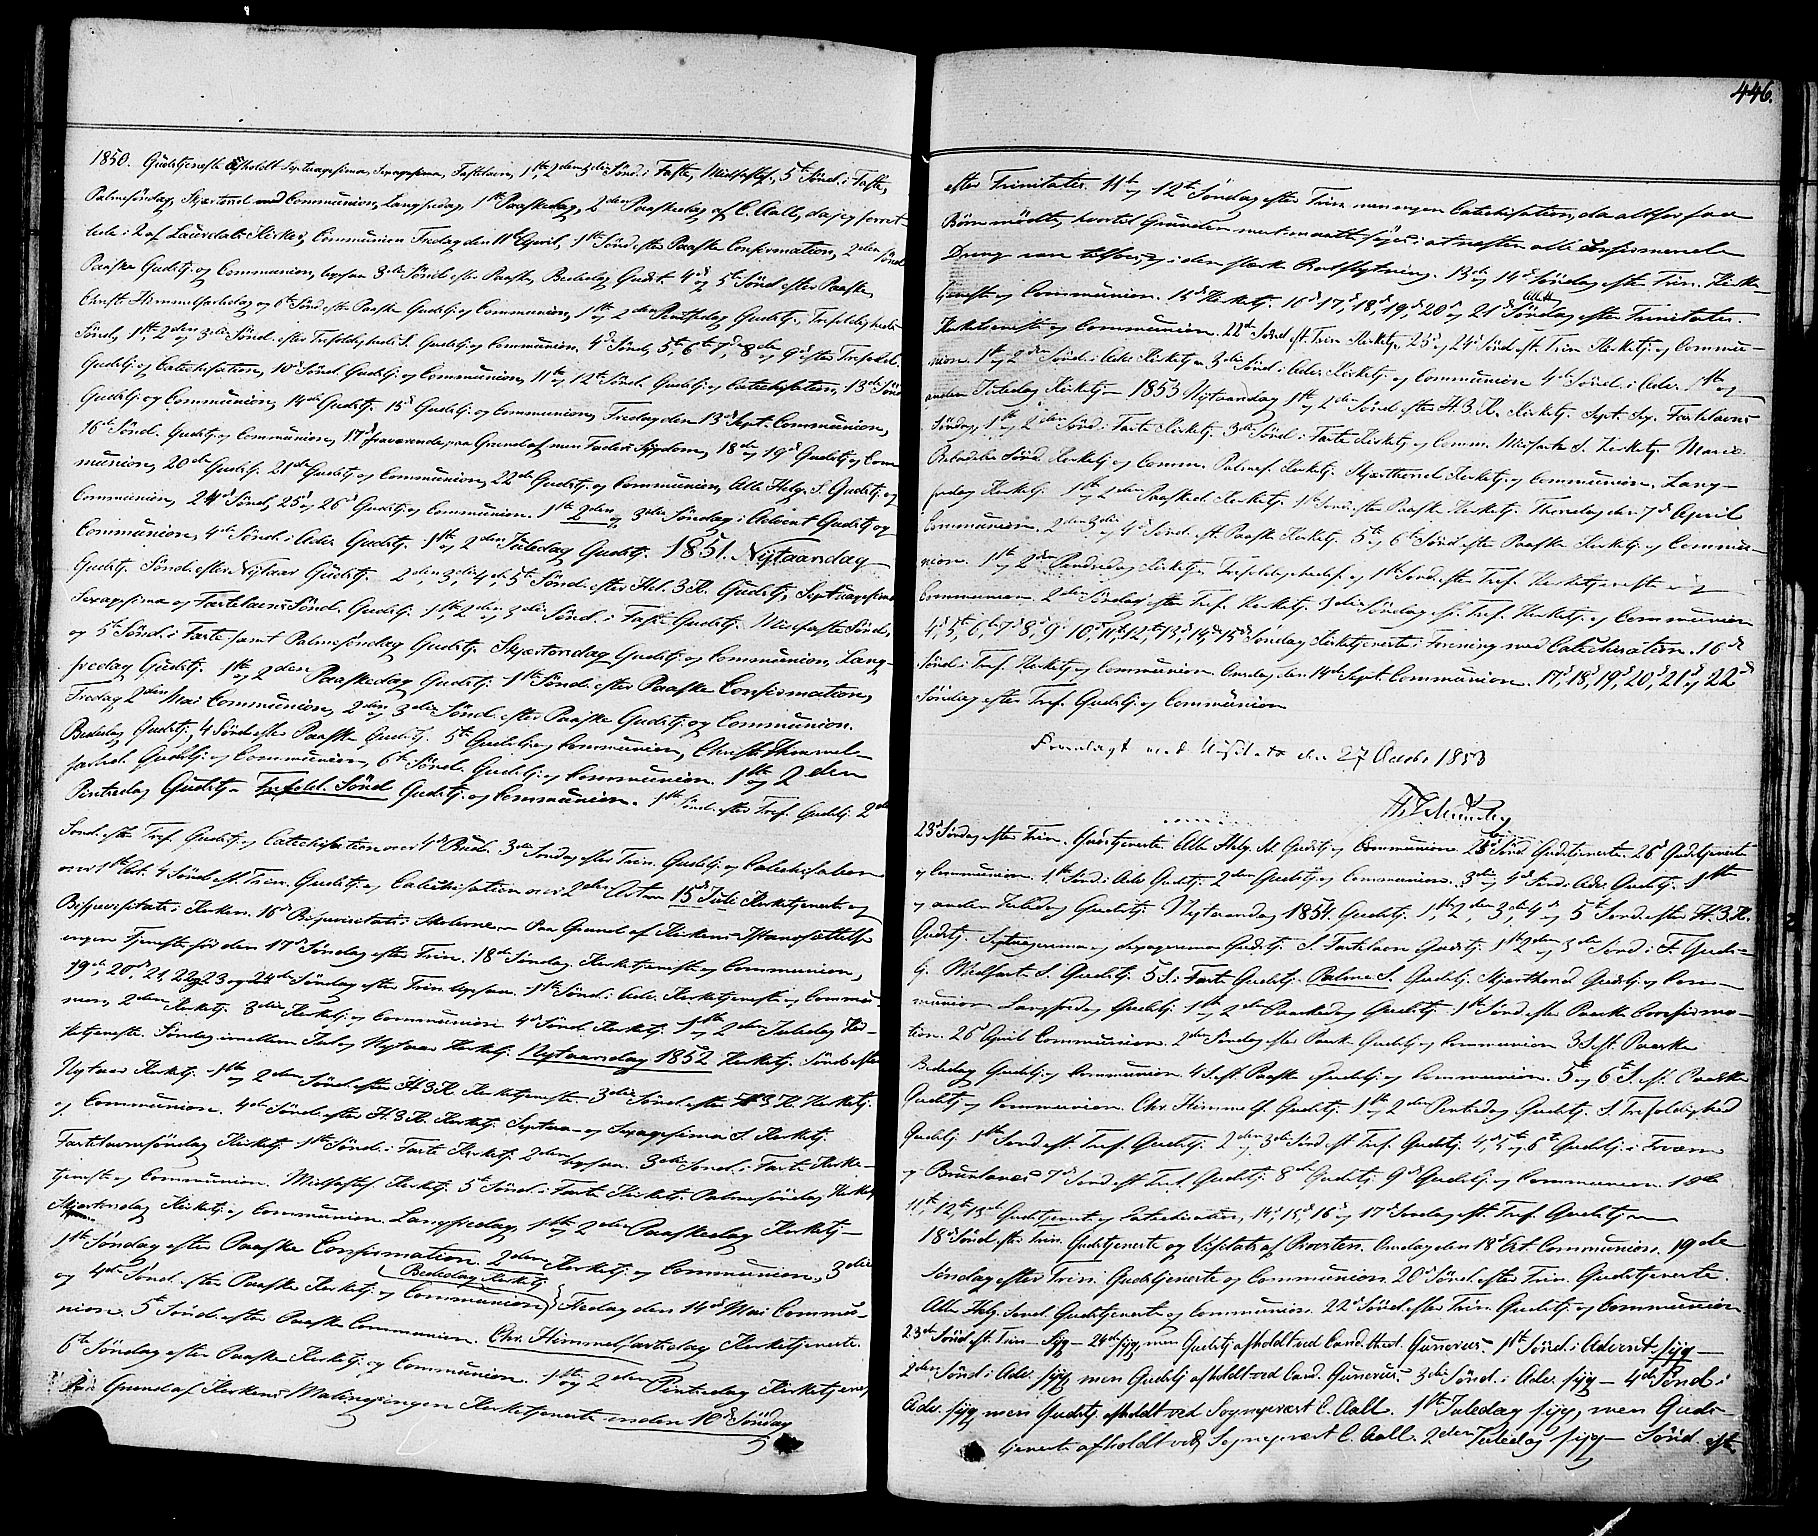 1850. Gudstjeneste afholdt Septuagesima, Sexagesima, Fastelavn, 1ste, 2den, 3die Sönd. i Faste, Midfastes., 5te Sönd. i Faste,
Palmesöndag, Skjærtorsd med Communion, Langfredag, 1ste Paaskedag, 2den Paaskedag af C. Aall, da jeg forret-
tede i 2 af Laurdals Kirker, Communion Fredag den 11te April, 1ste Sönd. efter Paaske Confirmation, 2den Sönd
Paaske Gudstj. og Communion, ligesaa 3die Sönd efter Paaske, Bededag Gudst. 4de og 5te Sönd efter Paaske,
Christi Himmelfartsdag og 6te Sönd. efter Paaske Gudstj. og Communion, 1ste og 2den Pintsedag Gudstj., Trefoldigheds
Sönd., 1ste, 2den og 3die Sönd. efter Trefoldigheds S. Gudstj. og Communion. 4de Sönd, 5te, 6te, 7de, 8de og 9de efter Trefoldh.
Gudstj. og Catechisation, 10de Sönd Gudstj. og Communion, 11te og 12te Sönd. Gudstj. og Catechisation, 13de Sönd
Gudstj. og Communion, 14de Gudstj. 15de Gudstj. og Communion, Fredag den 13de Sept. Communion,
16de Sönd. Gudstj. og Communion, 17de fraværende paa Grund af min Faders Sygdom, 18de og 19de Gudstj. og Com
munion, 20de Gudstj. 21de Gudstj. og Communion, 22de Gudstj. og Communion, Alle Helg. S. Gudstj. og
Communion, 24de Sönd, 25de og 26de Gudstj. og Communion. 1ste, 2den og 3die Söndag i Advent Gudstj. og
Communion, 4de Sönd. i Adv. Gudstj. 1ste og 2den Juledag Gudstj. 1851. Nytaarsdag
Gudstj. Sönd. efter Nytaar Gudstj. 2den, 3die, 4de, 5te Sönd. efter Hel. 3 K. Gudstj. Septuagesima
Sexagesima og Fastelavns Sönd. Gudstj. 1ste, 2den og 3die Sönd. i Faste Gudstj. Midfaste Sönd.
og 5te Sönd. i Faste samt Palmesöndag Gudstj. Skjærtorsdag Gudstj. og Communion, Lang-
fredag Gudstj. 1ste og 2den Paaskedag Gudstj. 1ste Sönd. efter Paaske Confirmation,
Fredag 2den Mai Communion, 2den og 3die Sönd. efter Paaske Gudstj. og Communion.
Bededag Gudstj., 4 Sönd. efter Paaske Gudstj. 5te Gudstj. og Communion, Christi Himmel-
fartsd. Gudstj. og Communion, 6te Sönd. Gudstj. og Communion. 1ste og 2den
Pintsedag Gudstj. Trefold. Sönd Gudstj. og Communion. 1ste Sönd. efter Tref. Gudstj. 2den
Sönd. efter Tref. Gudstj. og Catechisation over 4de Bud. 3die Söndag efter Trin. Gudstj. og Catechisation
over 1ste Art. 4 Sönd. eft. Trin. Gudstj. og Catechisation over 2den Art. 15de Juli Kirketjeneste og
Bispevisitats i Kirken. 16de Bispevisitats i Skolerne. Paa Grund af Kirkens Istandsættelse
ingen Tjeneste för den 17de Söndag efter Trin. 18de Söndag Kirketjeneste og Communion,
19de, 20de, 21, 22, 23 og 24de Söndag efter Trin ligesaa. 1ste Sönd. i Adv. Kirketjeneste og Commu-
nion, 2den Kirketj. 3die Kirketj. og Communion 4de Sönd. Kirketj. 1ste og 2den Juledag Kir-
ketjeneste. Söndag imellem Jul og Nytaar Kirketj. Nytaarsdag 1852 Kirketj. Sönd. efter
Nytaar Kirketj. 1ste og 2den Sönd. efter H. 3 K. Kirketjeneste 3die Sönd. efter H 3 K. Kirketj.
og Communion. 4de Sönd. efter H. 3 K. Kirketj. Septua- og Sexagesima S. Kirketj.
Fastelavnssöndag Kirketj. 1ste Sönd. i Faste Kirketj. 2den ligesaa. 3die Sönd. i Faste Kirke-
tjeneste og Communion. Midfastes. Kirketj. 5te Sönd. i Faste Kirketj. Palmesöndag Kirketj.
Skjærtorsdag Kirketj. og Communion. Langfredag, 1ste og 2den Paaskedag Kirketj.
1ste Söndag efter Paaske Confirmation. 2den Kirketj. og Communion, 3die
og 4de Sönd. efter Paaske Kirketj. og Communion (Bededag Kirketj.) Fredag den 14de Mai Commu-
nion. 5te Sönd. efter Paaske Communion. Chr. Himmelfartsdag Kirketjeneste.
6te Söndag efter Paaske Kirketj. og Communion. 1ste og 2den Pintsedag Kirketjenes.
Paa Grund af Kirkens Maling ingen Kirketjeneste inden 10de Söndag
446.
efter Trinitatis. 11te og 12te Söndag efter Trin. men ingen Catechisation, da altfor faa
Börn mödte, hvortil Grunden nest maatte söges i at næsten alle Confirmerede
Dreng var tilfods i den stærke Bortflytning. 13de og 14de Söndag efter Trin. Kirke-
tjeneste og Communion. 15de Kirketj. 16de 17de, 18de, 19de, 20de og 21de Söndag efter Trinitatis.
Kirketjeneste og Communion. 22de Sönd. eft. Trin Kirketj. 23de og 24de Sönd. eft. Trin Kirketj. og Commu-
nion. 1ste og 2den Sönd. i Adv. Kirketj. 3die Sönd. i Adv. Kirketj. og Communion 4de Sönd. i Adv. 1ste og
anden Juledag Kirketj. 1853 Nytaarsdag 1ste og 2den Sönd. efter H. 3 K. Kirketj. Sept. Sex. Fastelavns
Söndag, 1ste og 2den Sönd. i Faste Kirketj. 3die Sönd. i Faste Kirketj. og Comm. Midfaste S. Kirketj. Mariæ
Bebudelses Sönd. Kirketj. og Comm. Palmes. Kirketj. Skjærthorsd Kirketj. og Communion. Lang-
fredag Kirketj. 1ste og 2den Paasked. Kirketj. 1ste Sönd. efter Paaske Kirketj. Thorsdag den 7de April
Communion. 2den, 3die og 4de Sönd. eft. Paaske Kirketj. 5te og 6te Sönd. efter Paaske Kirketj. og Commu-
nion. 1ste og 2den Pindsedag Kirketj. Trefoldighedsf. og 1ste Sönd. efter Tref. Kirketjeneste og
Communion. 2den Söndag efter Tref. Kirketj. 3die Söndag eft. Tref. Kirketj. og Communion
4de, 5te, 6te, 7de, 8de, 9de 10de, 11te, 12te, 13de, 14de, 15de Söndag Kirketjeneste i Forening med Catechisation. 16de
Sönd. i Tref. Kirketj. og Communion. Onsdag den 14de Sept. Communion. 17de, 18de, 19de, 20de, 21de og 22de
Söndag efter Tref. Gudstj. og Communion
Fremlagt ved Visitats den 27 Octbr 1853
23de Söndag efter Trin. Gudstjeneste Alle Helg. S. Gudstj. og Communion. 25de Sönd. Gudstjeneste. 26de Gudstjeneste
og Communion. 1ste Sönd. i Adv. Gudstj. 2den Gudstj. og Communion. 3die og 4de Sönd. i Adv. Gudstj. 1ste
og anden Juledag Gudstj. Nytaarsdag 1854. Gudstj. 1ste, 2den, 3die, 4de og 5te Sönd. efter H. 3 K.
Gudstj. Septuagesima og Sexagesima Gudstj. S. Fastelavn Gudstj. 1ste, 2den og 3die Sönd. i F. Guds-
tj. Midfaste S. Gudstj. 5 S. i Faste Gudstj. Palme S. Gudstj. Skjærthorsd Gudstj. og Com-
munion Langfredag Gudstj. 1ste og 2den Paaskedag Gudstj. 1ste Sönd. efter Paaske Confirma-
tion. 26de April Communion. 2den Söndag efter Paask. Gudstj. og Communion 3 S. eft. Paaske
Bededag Gudstj. og Communion. 4 S. eft. Paaske Gudstj. og Communion. 5te og 6te S. eft. Paaske
Gudstj. og Communion. Chr. Himmelf. Gudstj. 1ste og 2den Pintsedag Gudstj. S. Trefoldighed
Gudstj. 1ste Sönd. eft. Tref. Gudstj. 2den, 3die Sönd. eft. Tref. Gudstj. 4de, 5te og 6te Gudstj. i Kværn
og Brunlanes 7de Sönd. eft. Tref. Gudstj. 8de Gudstj. 9de Gudstj. og Communion. 10de
11te, 12te, 13de Gudstjeneste og Catechisation, 14de, 15de, 16de og 17de Söndag eft. Tref. Gudstj.
18de Sönd. efter Trin. Gudstjeneste og Visitats af Provsten. Onsdag den 18de Oct. Communion. 19de
Söndag efter Trin. Gudstjeneste og Communion. 20de Sönd. efter Trin. Gudstjeneste.
Alle Helg. Sönd. Gudstjeneste og Communion. 22de Sönd. efter Trin. Gudstj. og Communion
23de Sönd. eft. Trin. Syg 24de syg, men Gudstj. afholdt ved Cand. theol. Gunerus. 1ste Sönd. i Advent syg
2den Sönd. i Adv. syg men Gudstj. afholdt ved Cand. Gunerus 3die Sönd. i Adv. syg 4de Sönd i
Adv. syg, men Gudstj. afholdt ved Sognepræst C. Aall. 1ste Juledag syg, men Guds-
tjeneste afholdt ved Sognepræst C. Aall. 2den Juledag syg Sönd. eft.